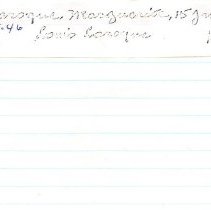 aroque, Marguerite, 15 Ju
-46 Louis Laroque